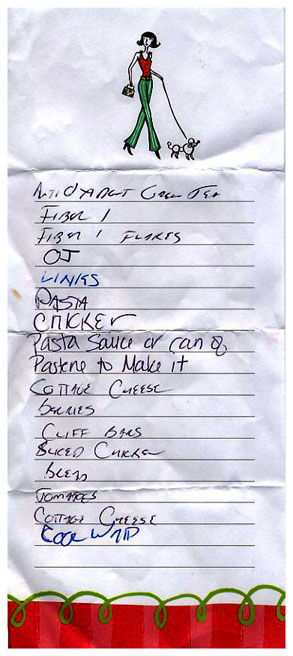 Antioxidant Green Tea
Fiber 1
Fiber 1 Flakes
OJ
Links
Pasta
Chicken
Pasta Sauce or can of
Pastene to Make it
Cottage Cheese
Berries
Cliff Bars
Sliced Chicken
Bread
Tomatoes
Cottage Cheese
Cool Whip